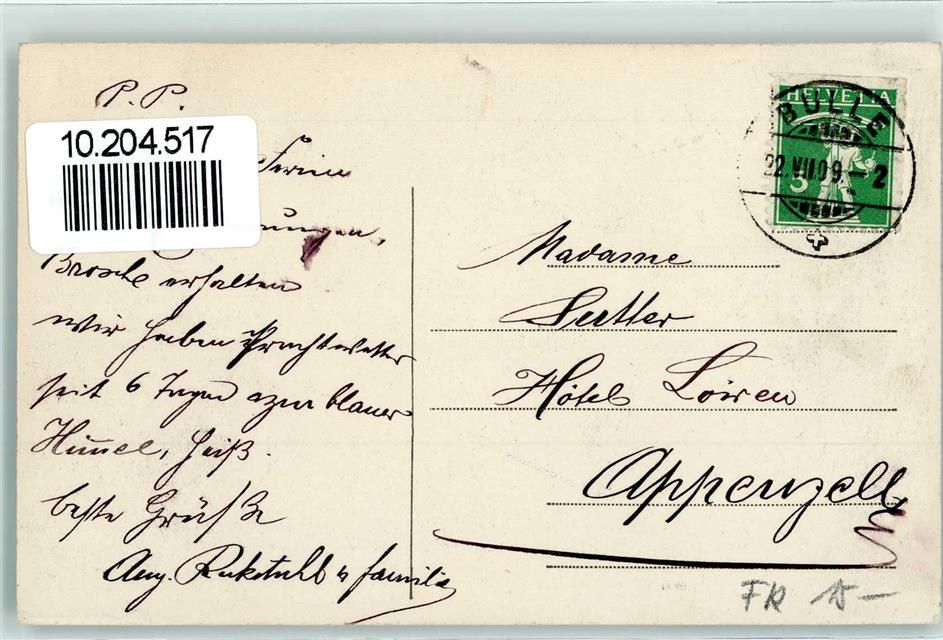 P. P.
10.204.517
Ferien
Brosch erhalten
wir haben Prachtwetter
seit 6 Tagen azur blauer
Himmel, heiß.
beste Grüße
Aug. Ruckstuhl & familie
HELVETIA
5
BULLE
22.VII.09.-2
Madame
Sutter
Hôtel Löwen
Appenzell
FR 15-